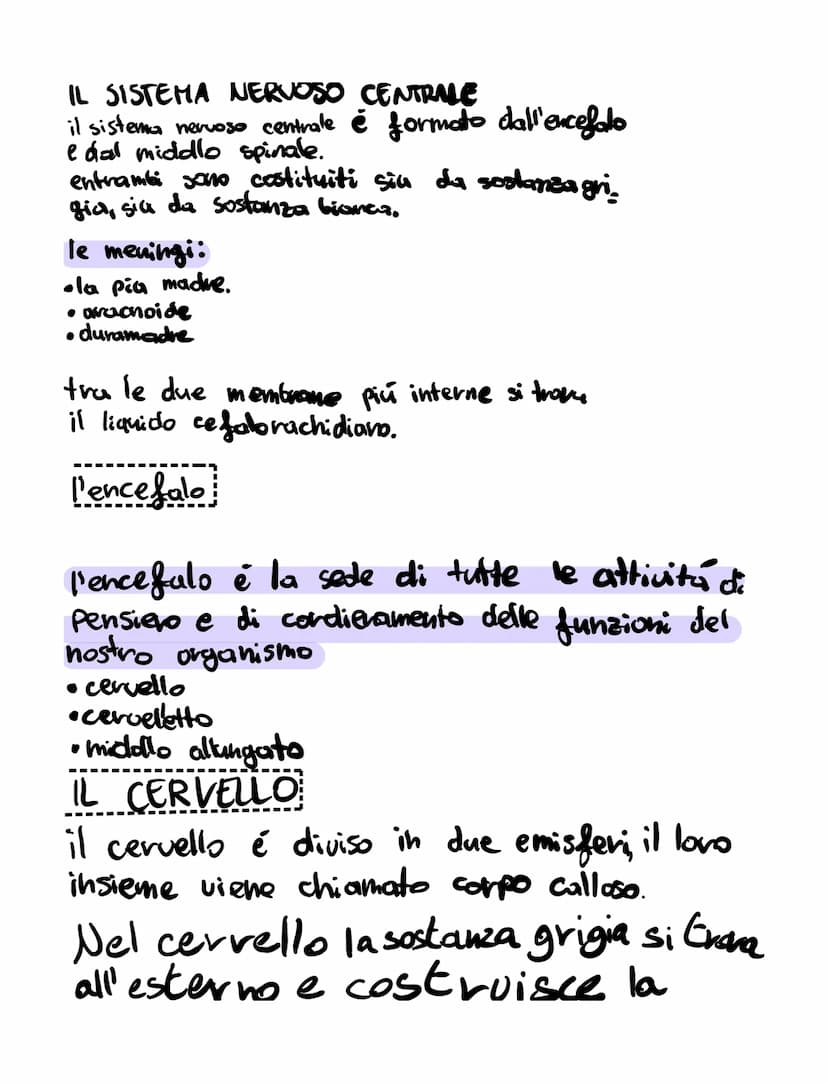 IL SISTEMA NERVOSO CENTRALE
il sistema nervoso centrale é formato dall'encefalo
e dal middllo spinale.
entrambi sono costituiti sia da sostanza gri-
gia, sia da sostanza bianca.
le meningi:
•la pia madre.
• aracnoide
• duramadre
tra le due membrane piú interne si trova
il liquido cefalorachidiano.
l'encefalo
l'encefalo é la sede di tutte le attivitá di
pensiero e di cordieramento delle funzioni del
nostro organismo
• cervello
•cervelletto
• middllo allungato
IL CERVELLO
il cervello é diviso in due emisferi, il loro
insieme viene chiamato corpo calloso.
Nel cervello la sostanza grigia si trova
all'esterno e costruisce la